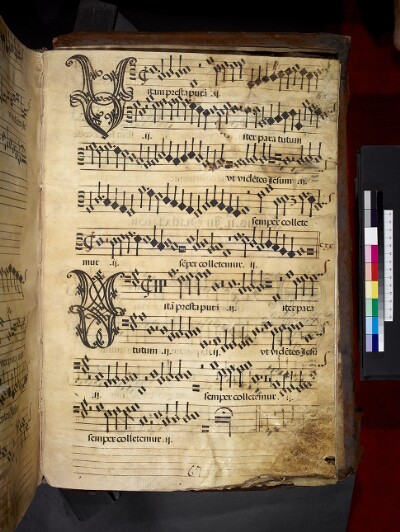 Vitam presta purā .ij.
.ij. iter para tutum
ut vidētes Jesum .ij.
semper collete
mur .ij. sēper colletemur .ij.
Vitā presta purā .ij. iter para
tutum .ij. .ij. ut vidētes Jesū
.ij. semper colletemur .ij.
semper colletemur .ij.
67